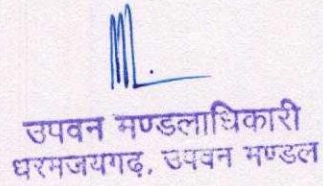 उपवन मण्डलाधिकारी
धरमजयगढ़, उपवन मण्डल